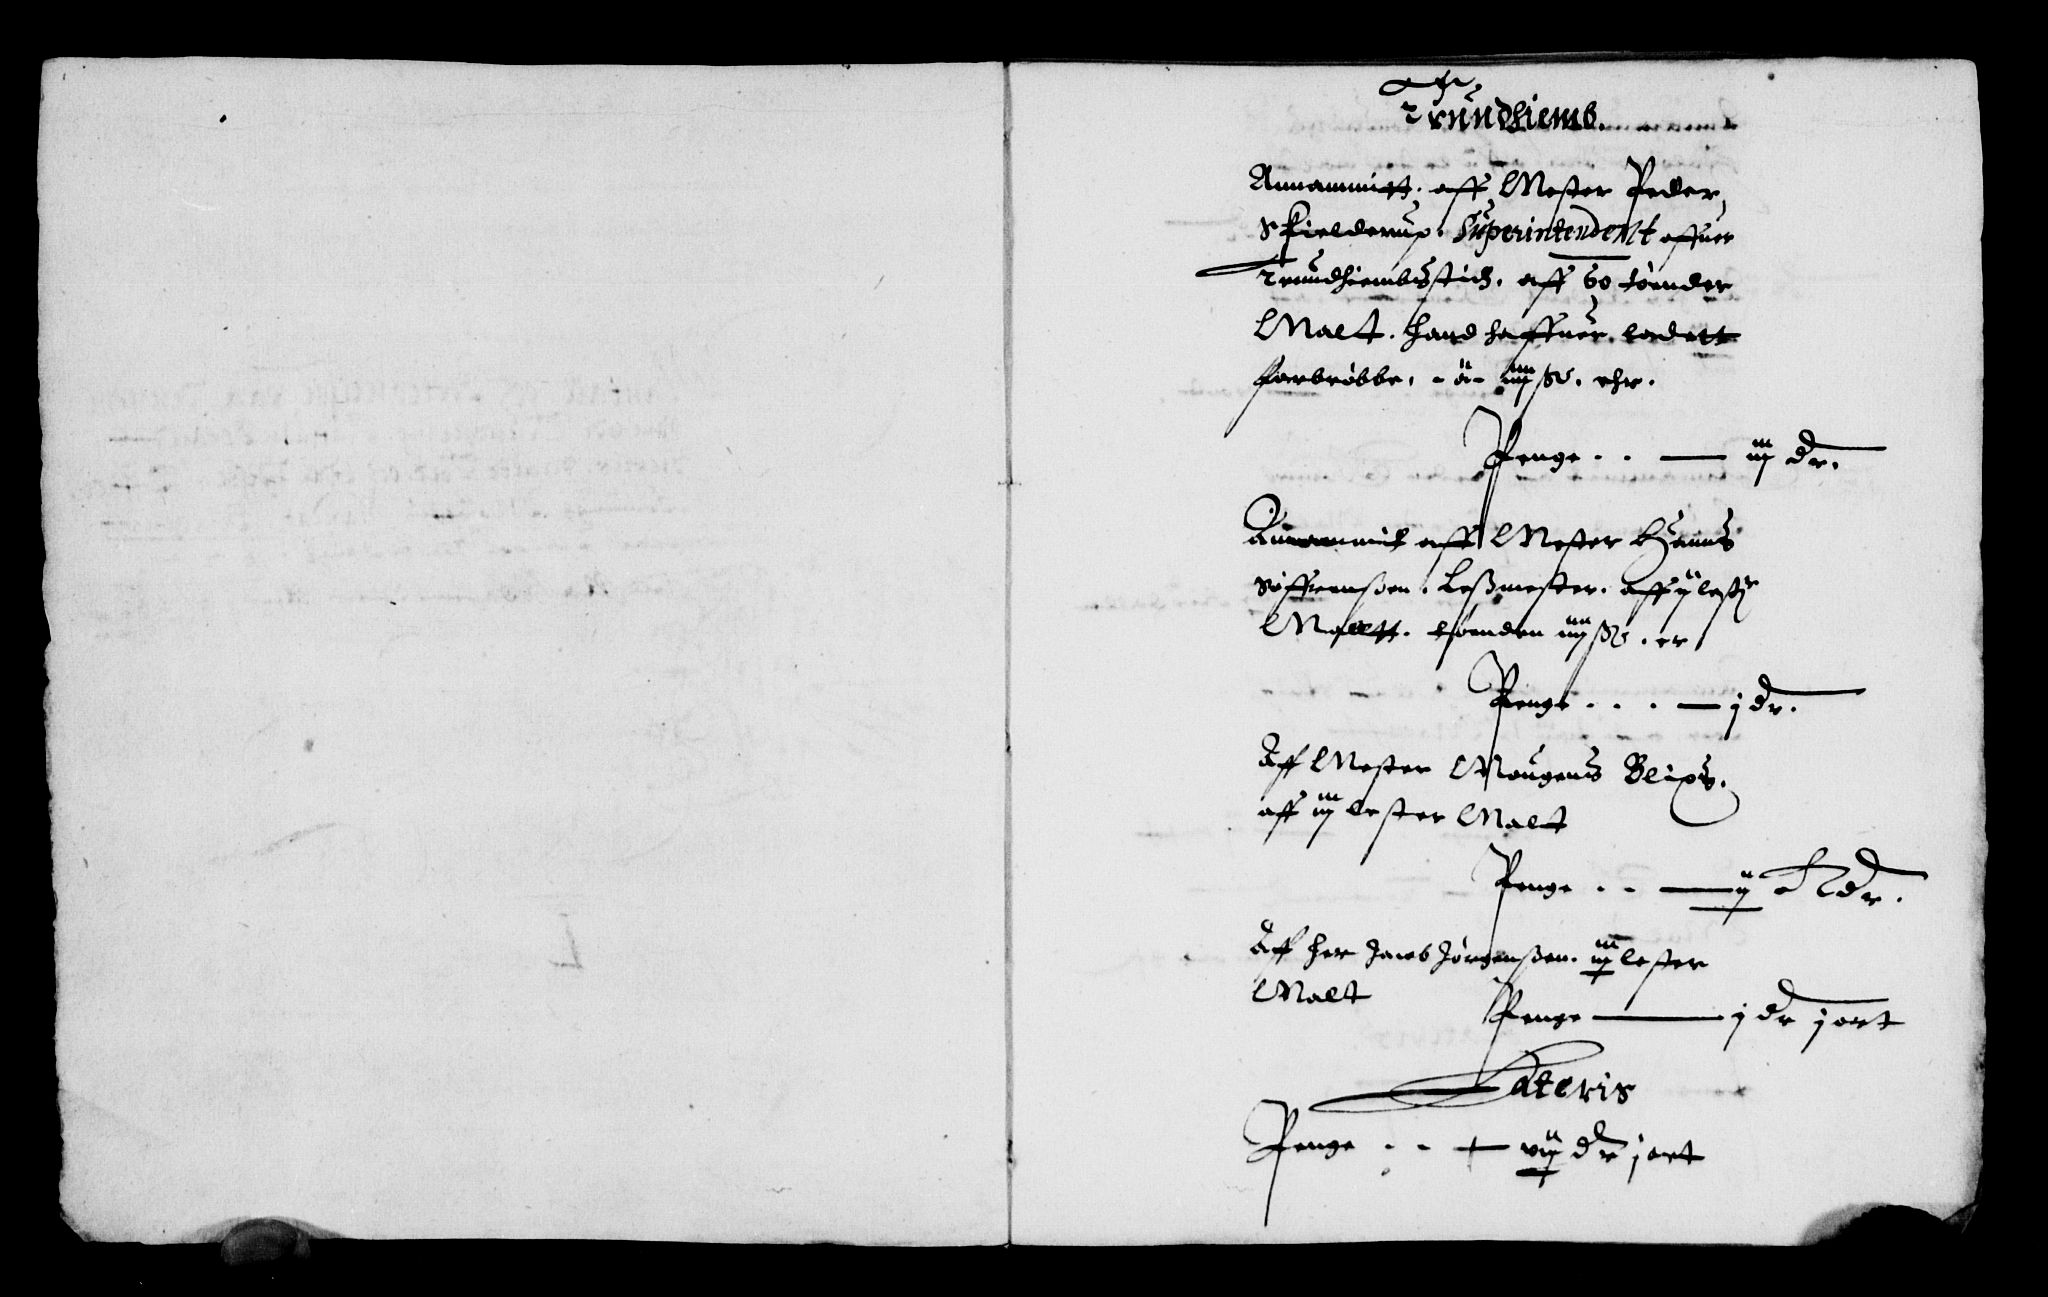 Trundhiemb.
Annammitt. aff Mester Peder,
Skielderup. Superintendent offuer
Trundhiembsstict. aff 60 tønder
Malt. hand haffuer. ladett
forbrøbbe. - ä - iiij sk. ehr.
Penge . . — iiij dr.
Annammit aff Mester Hanns
Søffrenßøen. Leßmester. aff ij lester
Maltt. tønden iiij sk. er
Penge . . . — j dr.
Aff Mester Mougens Blixs.
aff iij lester Malt
Penge . . — ij dr.
Aff her Jacob Jørgenßøen. iij lester
Malt
Penge — j dr j ort
Lateris
Penge . . — vij dr j ort